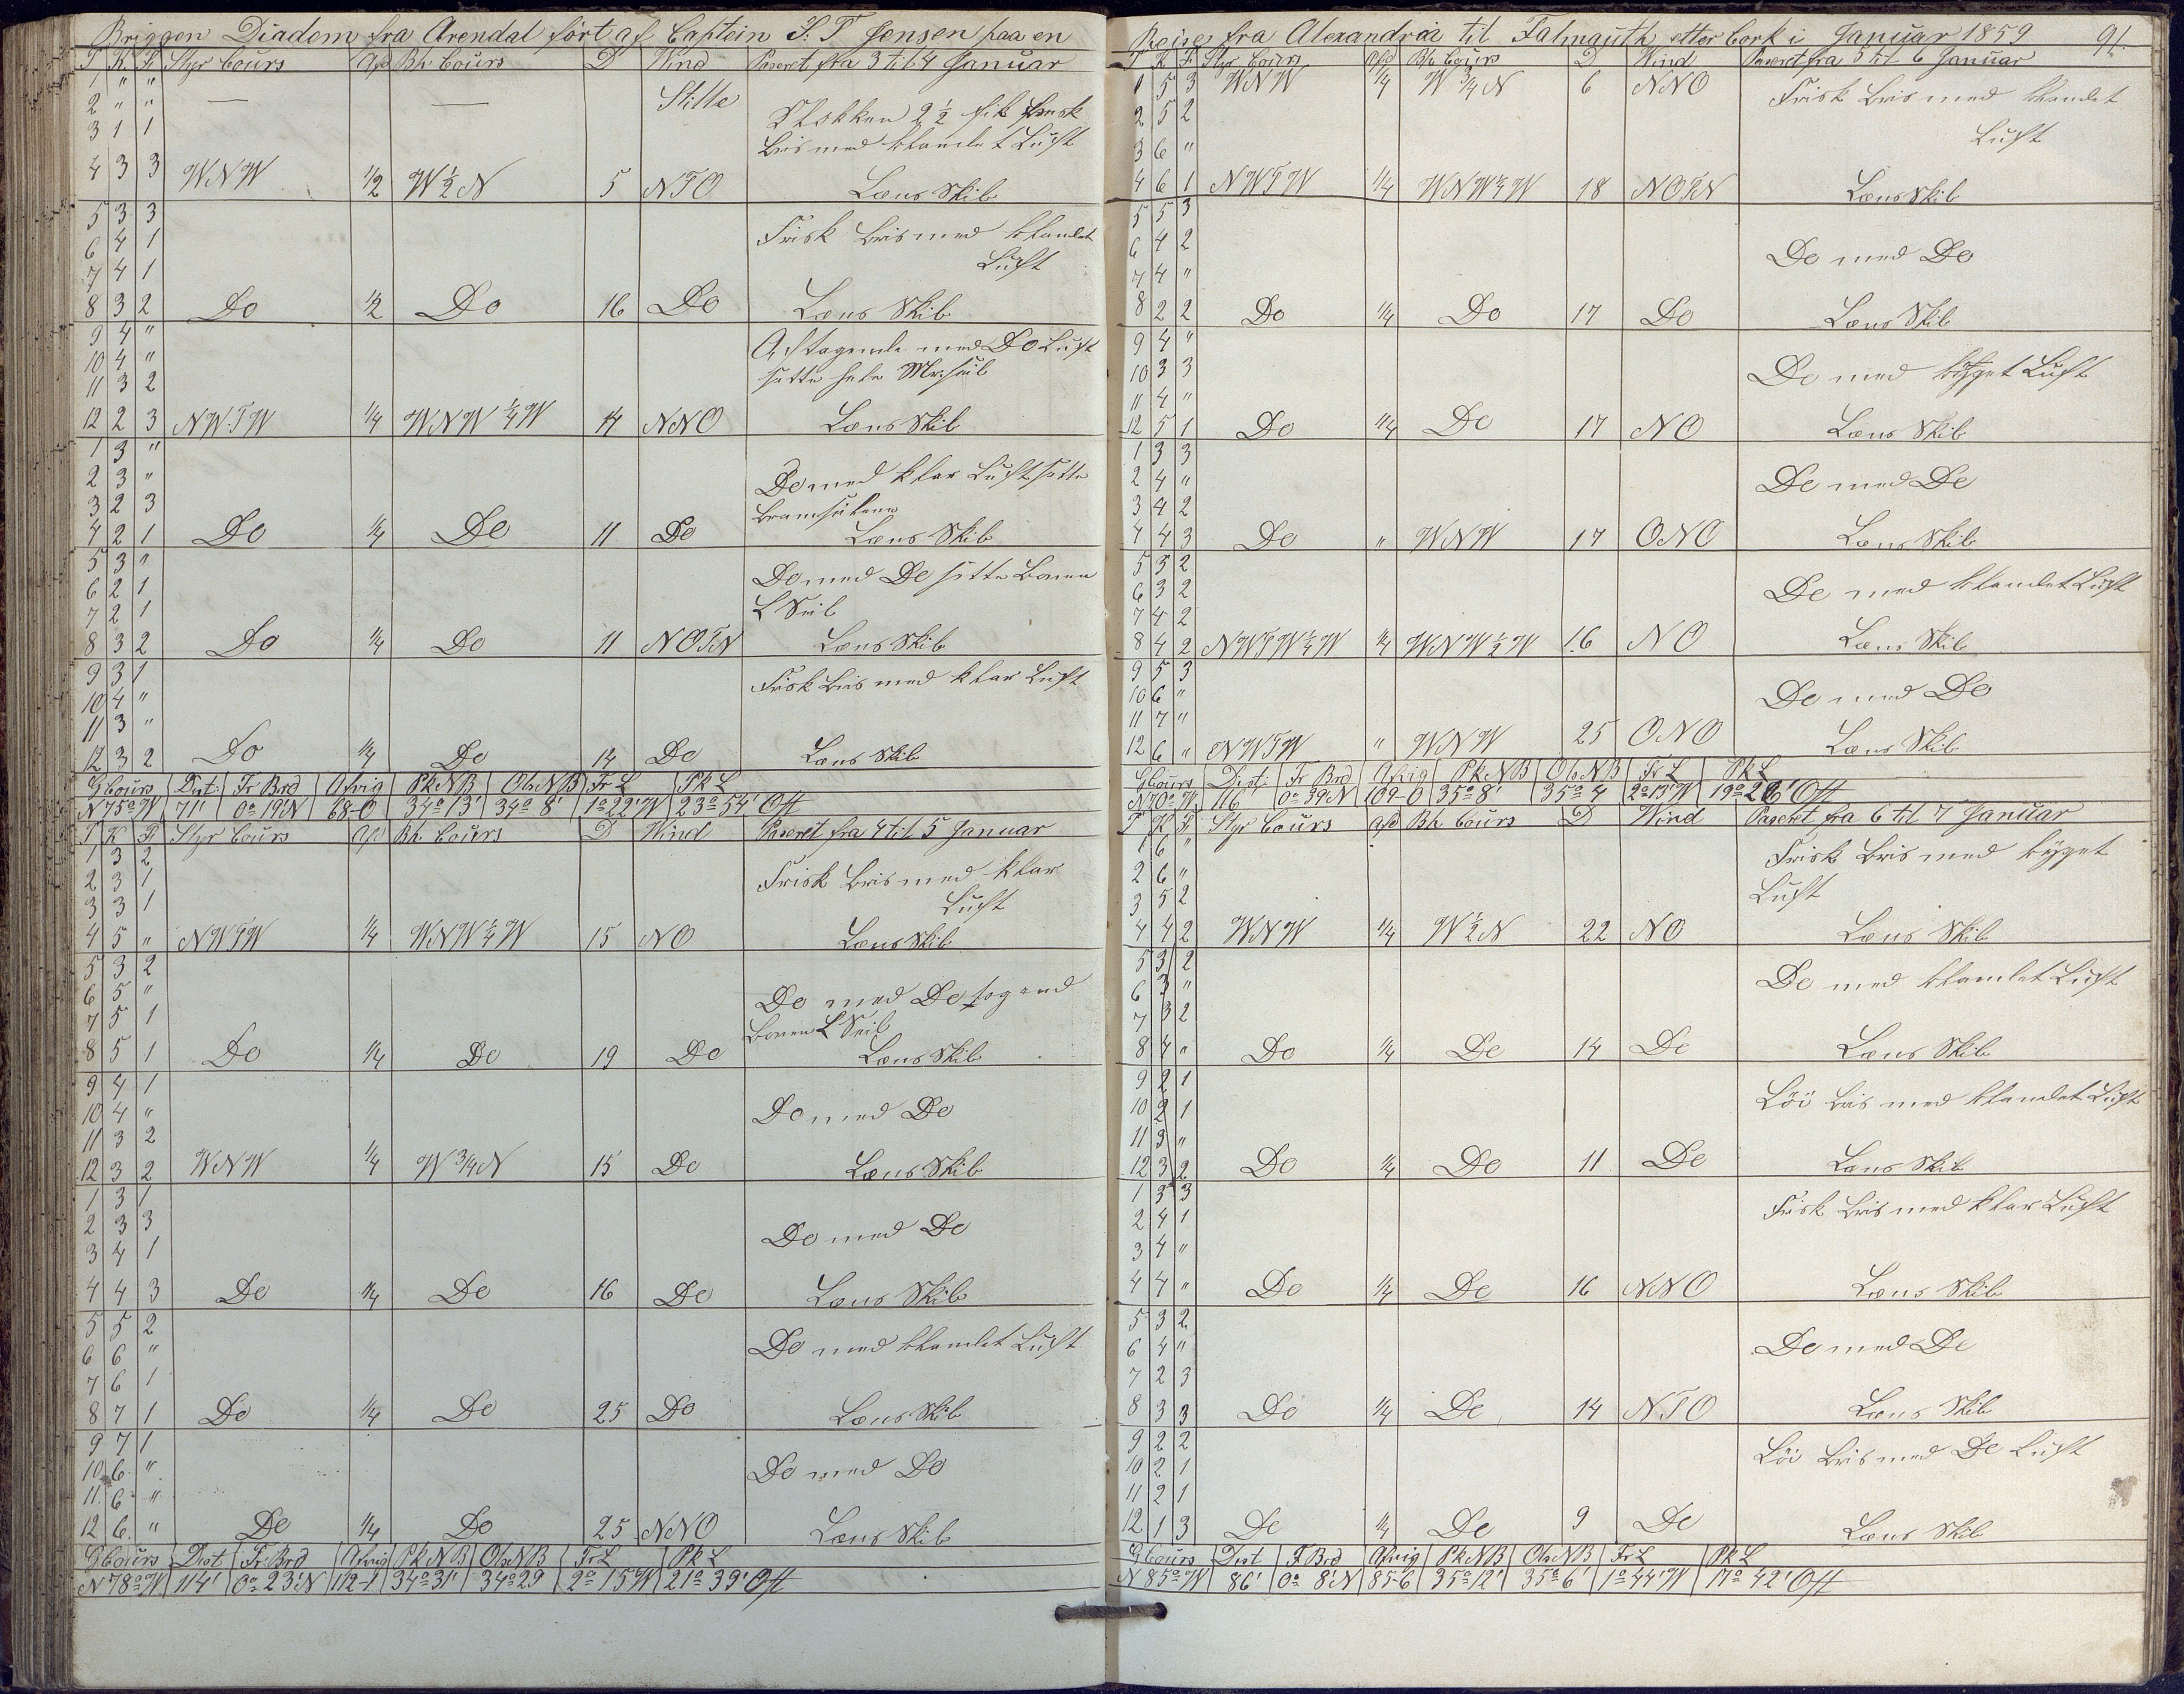 Briggen Diadem fra Arendal ført af Captein S. T Jensen paa en
T K F Styr Cours Afd Bh Cours D Wind Passeret fra 3 til 4 Januar
1 " "
2 " " — — Stille
3 1 1 Klokken 2 ½ fik frisk
Bris med blandet Luft
4 3 3 WNW ½ W½N 5 NTO Læns Skib
5 3 3
6 4 1 Frisk Bris med blandet
7 4 1 Luft
8 3 2 Do ½ Do 16 Do Læns Skib
9 4 " Aftagende med Do Luft
10 4 " satte hele
11 3 2
12 2 3 NWTW ¼ WNW¼W 14 NNO Læns Skib
1 3 "
2 3 " Do med klar Luft satte
3 2 3 Bramseilene
4 2 1 Do ¼ Do 11 Do Læns Skib
5 3 "
6 2 1 Do med Do satte Boven
7 2 1 L Seil
8 3 2 Do ¼ Do 11 NOTN Læns Skib
9 3 1 Frisk Bris med klar Luft
10 4 "
11 3 "
12 3 2 Do ¼ Do 14 Do Læns Skib
G Cours Dist: Fr Brd Afvig PkNB ObsNB Fr L Pk L
N75°W 71' 0°19'N 68-0 34°13' 34°8' 1°22'W 23°54' Ost
T K F Styr Cours Afd Bh Cours D Wind Passeret fra 4 til 5 Januar
1 3 2
2 3 1 Frisk Bris med klar
3 3 1 Luft
4 5 " NWTW ¼ WNW¼W 15 NO Læns Skib
5 3 2
6 5 " Do med Do tog ind
7 5 1 Boven L Seil
8 5 1 Do ¼ Do 19 Do Læns Skib
9 4 1
10 4 " Do med Do
11 3 2
12 3 2 WNW ¼ W¾N 15 Do Læns Skib
1 3 1
2 3 3 Do med Do
3 4 1
4 4 3 Do ¼ Do 16 Do Læns Skib
5 5 2
6 6 " Do med blandet Luft
7 6 1
8 7 1 Do ¼ Do 25 Do Læns Skib
9 7 1
10 6 " Do med Do
11 6 "
12 6 " Do ¼ Do 25 NNO Læns Skib
G Cours Dist Fr. Brd Afvig PkNB ObsNB Fr L Pk L
N78°W 114' 0°23'N 112-1 34°31' 34°29 2°15'W 21°39' Ost
Reise fra Alexandria til Falmouth etter Cork i Januar 1859 91.
T K F Styr Cours Afd Bh Cours D Wind Passeret fra 5 til 6 Januar
1 5 3 WNW ¼ W¾N 6 NNO Frisk Bris med blandet
2 5 2
3 6 " Luft
4 6 1 NWTW ¼ WNW¼W 18 NOTN Læns Skib
5 5 3
6 4 2 Do med Do
7 4 "
8 2 2 Do ¼ Do 17 Do Læns Skib
9 4 "
10 3 3 Do med bÿget Luft
11 4 "
12 5 1 Do ¼ Do 17 NO Læns Skib
1 3 3
2 4 " Do med Do
3 4 2
4 4 3 Do " WNW 17 ONO Læns Skib
5 3 2
6 3 2 Do med blandet Luft
7 4 2
8 4 2 NWTW¼W ¼ WNW½W 16 NO Læns Skib
9 5 3
10 6 " Do med Do
11 7 "
12 6 " NWTW " WNW 25 ONO Læns Skib
G Cours Dist: Fr Brd Afvig PkNB ObsNB Fr L Pk L
N70°W 116 0°39'N 109-0 35°8' 35°4 2°13'W 19°26' Ost
T K F Styr Cours Afd Bh Cours D Wind Passeret fra 6 til 7 Januar
1 6 " Frisk Bris med bÿget
2 6 "
3 5 2 Luft
4 4 2 WNW ¼ W½N 22 NO Læns Skib
5 3 2
6 3 " Do med blandet Luft
7 3 2
8 4 " Do ¼ Do 14 Do Læns Skib
9 2 1
10 2 1 Löi Bris med blandet Luft
11 3 "
12 3 2 Do ¼ Do 11 Do Læns Skib
1 3 3
2 4 1 Frisk Bris med klar Luft
3 4 "
4 4 " Do ¼ Do 16 NNO Læns Skib
5 3 2
6 4 " Do med Do
7 2 3
8 3 3 Do ¼ Do 14 NTO Læns Skib
9 2 2
10 2 1 Löi Bris med Do Luft
11 2 1
12 1 3 Do ¼ Do 9 Do Læns Skib
G Cours Dist F Brd Afvig PkNB ObsNB Fr L Pk L
N85°W 86' 0°8'N 85-6 35°12' 35°6' 1°44'W 17°42' Ost